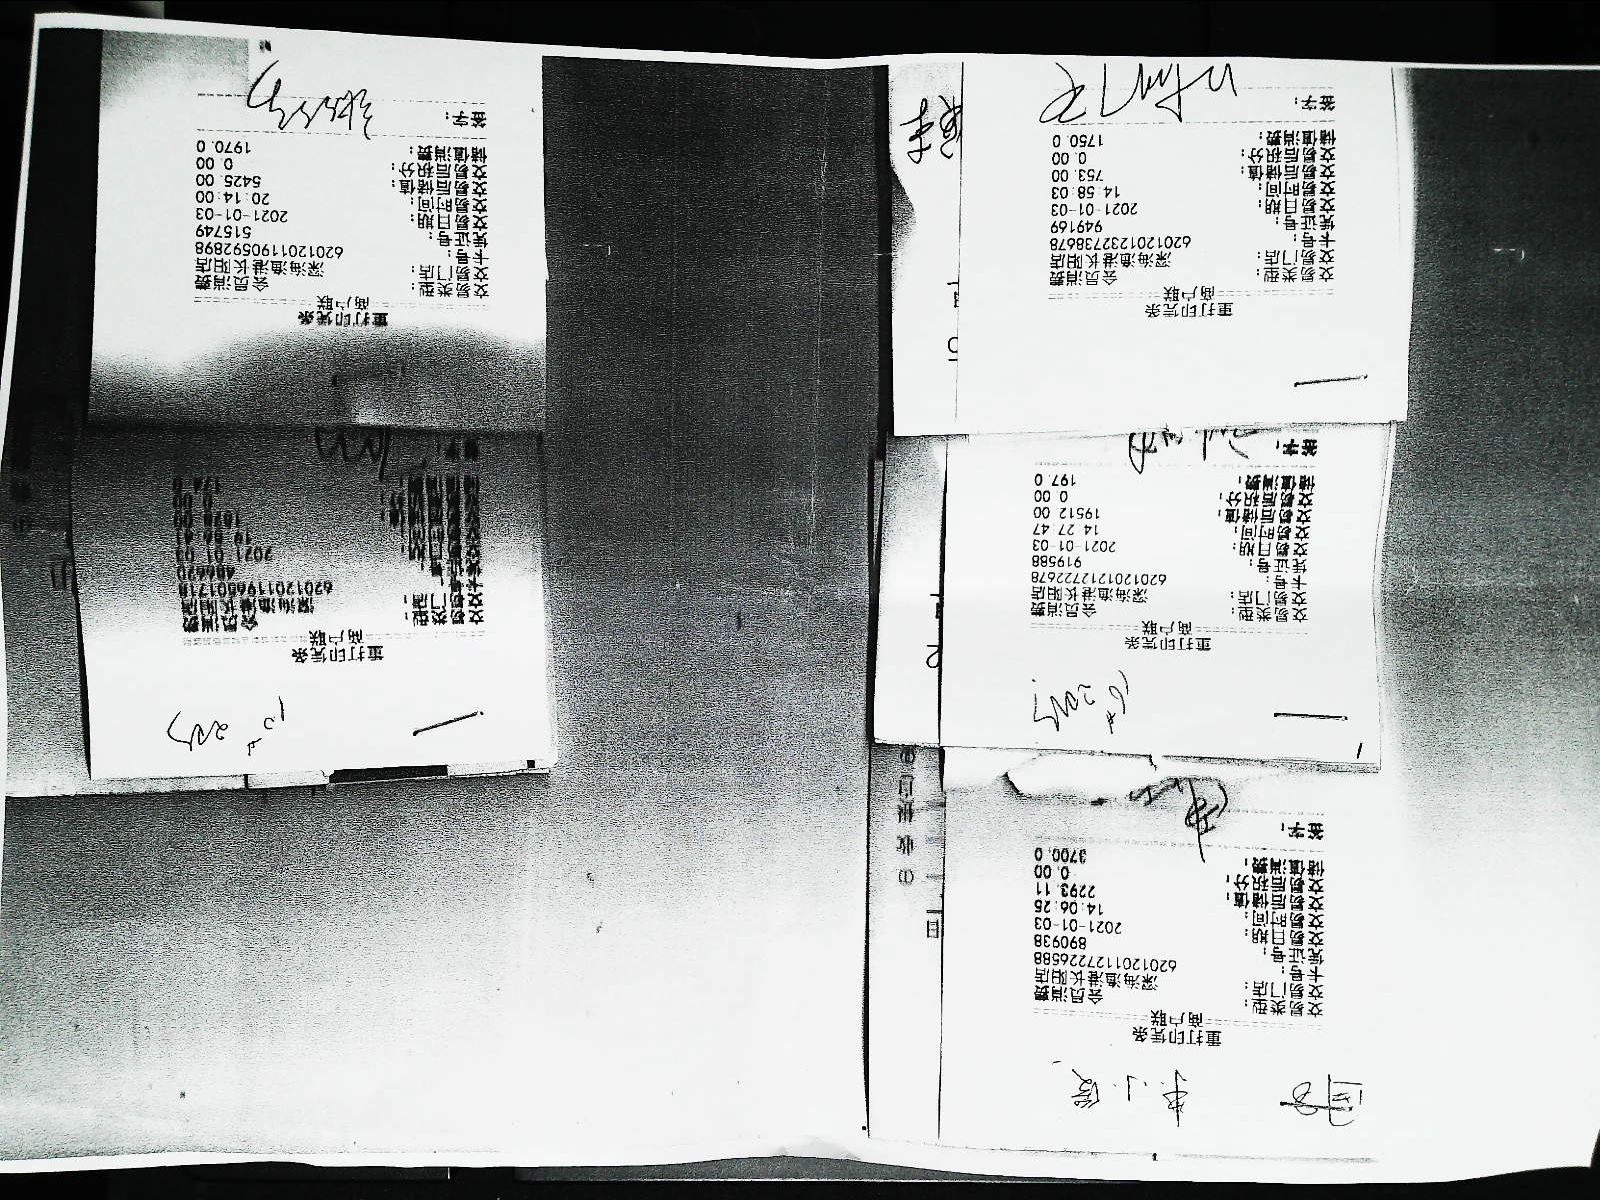 重打印凭条
商户联
交易类型: 会员消费
交易门店: 深海渔港长阳店
卡号: 6201201127226588
凭证号: 890938
交易日期: 2021-01-03
交易时间: 14:06:25
交易后储值: 2293.11
交易后积分: 0.00
储值消费: 3700.0
签字:
重打印凭条
商户联
交易类型: 会员消费
交易门店: 深海渔港长阳店
卡号: 6201201212722678
凭证号: 919588
交易日期: 2021-01-03
交易时间: 14 27 47
交易后储值: 19512 00
交易后积分: 0 00
储值消费: 197 0
签字:
重打印凭条
商户联
交易类型: 会员消费
交易门店: 深海渔港长阳店
卡号: 6201201232738678
凭证号: 949169
交易日期: 2021-01-03
交易时间: 14:58:03
交易后储值: 753.00
交易后积分: 0.00
储值消费: 1750.0
签字:
重打印凭条
商户联
交易类型: 会员消费
交易门店: 深海渔港长阳店
6201201196501718
2021 01 03
重打印凭条
商户联
交易类型: 会员消费
交易门店: 深海渔港长阳店
卡号: 6201201190592898
凭证号: 515749
交易日期: 2021-01-03
交易时间: 20:14:00
交易后储值: 5425.00
交易后积分: 0.00
储值消费: 1970.0
签字: